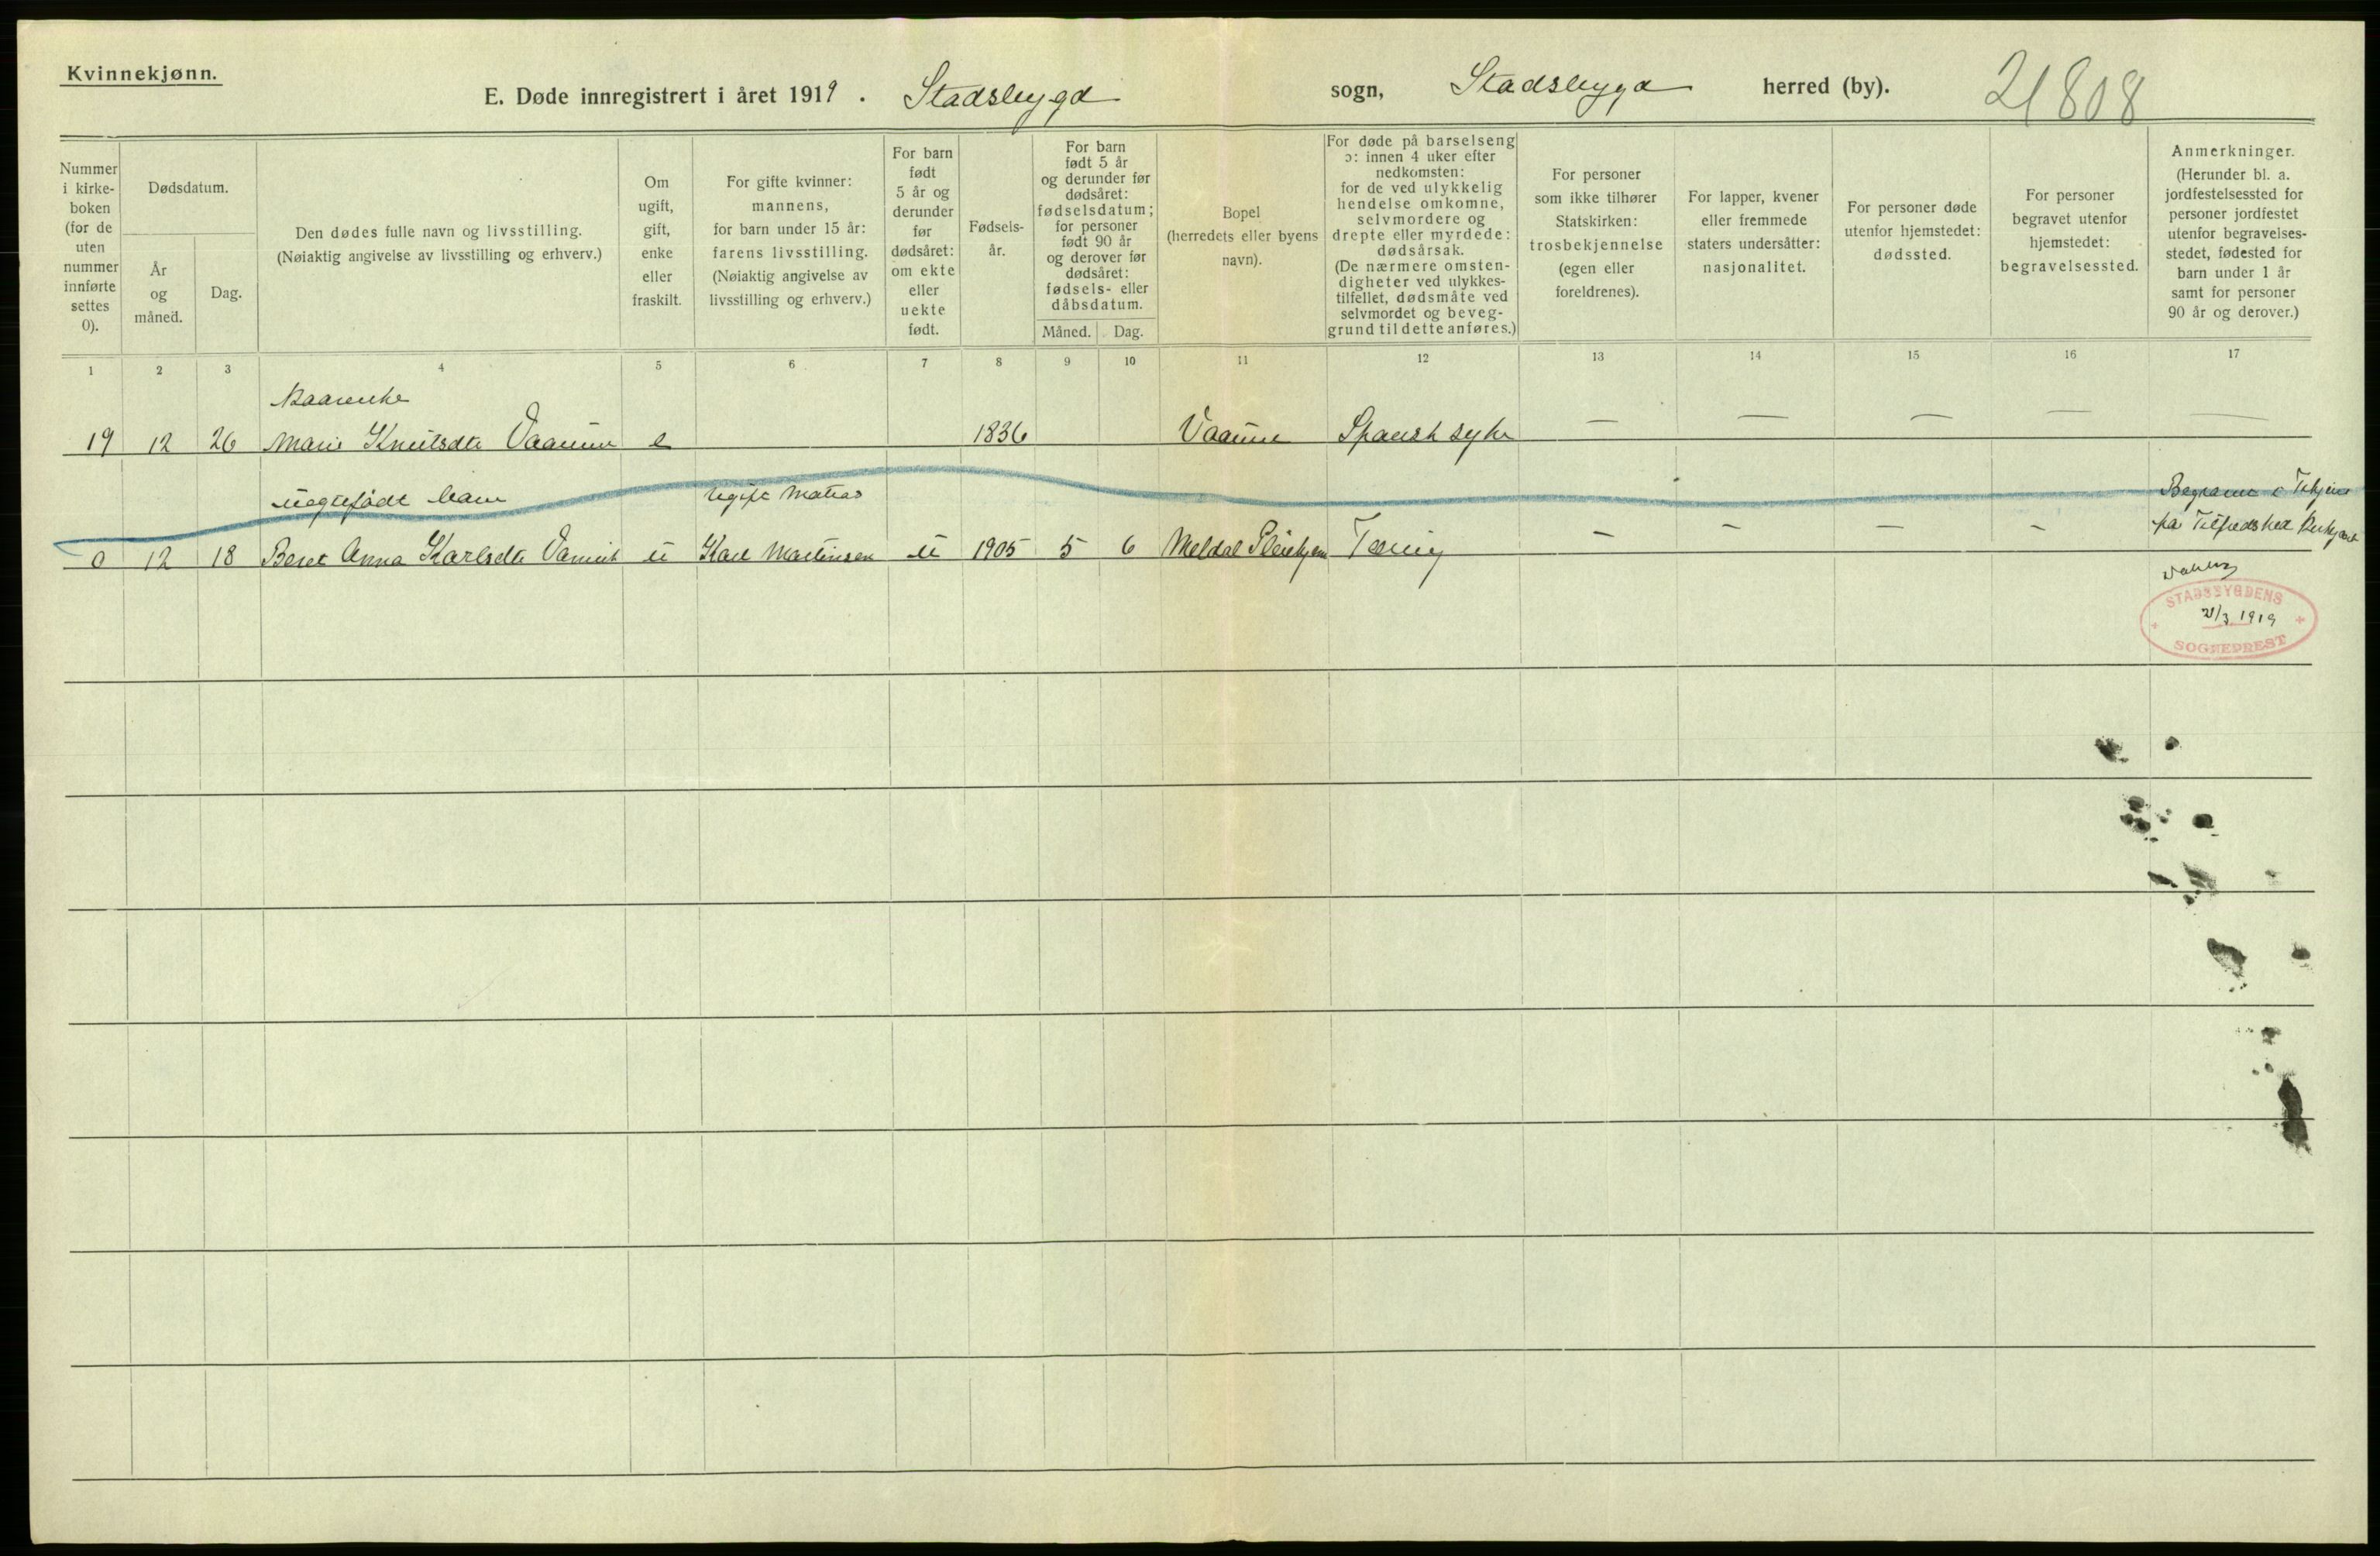 Kvinnekjønn.
E. Døde innregistrert i året 1919. Stadsbygd sogn, Stadsbygd herred (by). 21808
Nummer i kirke- boken (for de uten nummer innførte settes 0).
Dødsdatum.
År og måned.
Dag.
Den dødes fulle navn og livsstilling.
(Nøiaktig angivelse av livsstilling og erhverv.)
Om ugift, gift, enke eller fraskilt.
For gifte kvinner: mannens, for barn under 15 år: farens livsstilling. (Nøiaktig angivelse av livsstilling og erhverv.)
For barn født 5 år og derunder før dødsåret: om ekte eller uekte født.
Fødsels- år.
For barn født 5 år og derunder før dødsåret: fødselsdatum; for personer født 90 år og derover før dødsåret: fødsels- eller dåbsdatum.
Måned. Dag.
Bopel (herredets eller byens navn).
For døde på barselseng ɔ: innen 4 uker efter nedkomsten: for de ved ulykkelig hendelse omkomne, selvmordere og drepte eller myrdede: dødsårsak. (De nærmere omsten- digheter ved ulykkes- tilfellet, dødsmåte ved selvmordet og beveg- grund til dette anføres.)
For personer som ikke tilhører Statskirken: trosbekjennelse (egen eller foreldrenes).
For lapper, kvener eller fremmede staters undersåtter: nasjonalitet.
For personer døde utenfor hjemstedet: dødssted.
For personer begravet utenfor hjemstedet: begravelsessted.
Anmerkninger. (Herunder bl. a. jordfestelsessted for personer jordfestet utenfor begravelses- stedet, fødested for barn under 1 år samt for personer 90 år og derover.)
1 2 3 4 5 6 7 8 9 10 11 12 13 14 15 16 17
19 12 26 Marie Knutsdtr e 1836 Spansk syke — — — — —
uegtefødt barn
0 12 18 Beret Anna Karlsdtr u Karl Martinsen u 1905 5 6 Meldal Tæring — — — —
på Tilfredshed
STADSBYGDENS
21/3 1919
SOGNEPREST